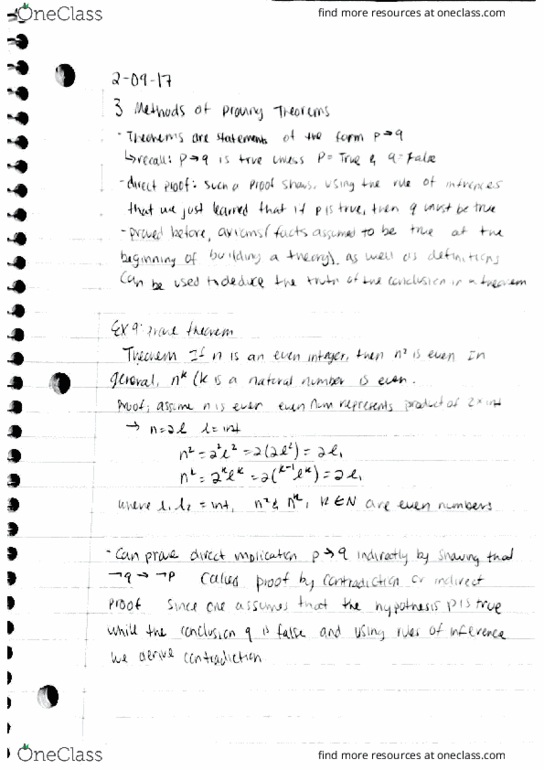 OneClass
find more resources at oneclass.com
2-09-17
3 Methods of Proving Theorems
- Theorems are statements of the form p→q
↳recall: p→q is true unless p= True & q= False
- direct proof: such a proof shows, using the rule of infrences
that we just learned that if p is true, then q must be true
- proved before, axioms (facts assumed to be true at the
beginning of building a theory), as well as definitions
can be used to deduce the truth of the conclusion in a theorem
Ex 9: prove theorem
Theorem If n is an even integer, then n² is even In
general, nᵏ (k is a natural number is even.
Proof; assume n is even even num represents product of 2 x int
→ n=2l l=int
n² = 2²l² = 2(2l²) = 2l₁
= 2ᵏlᵏ = 2( lᵏ) = 2l₁
where l₁ = int, n² & nᵏ, k∈N are even numbers
- Can prove direct implication p→q indirectly by showing that
¬q→¬p Called proof by contradiction or indirect
proof Since one assumes that the hypothesis p is true
while the conclusion q is false and using rules of inference
we derive contradiction
OneClass
find more resources at oneclass.com